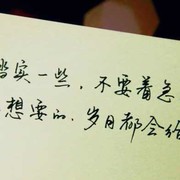 踏实一些，不要着急
想要的，岁月都会给